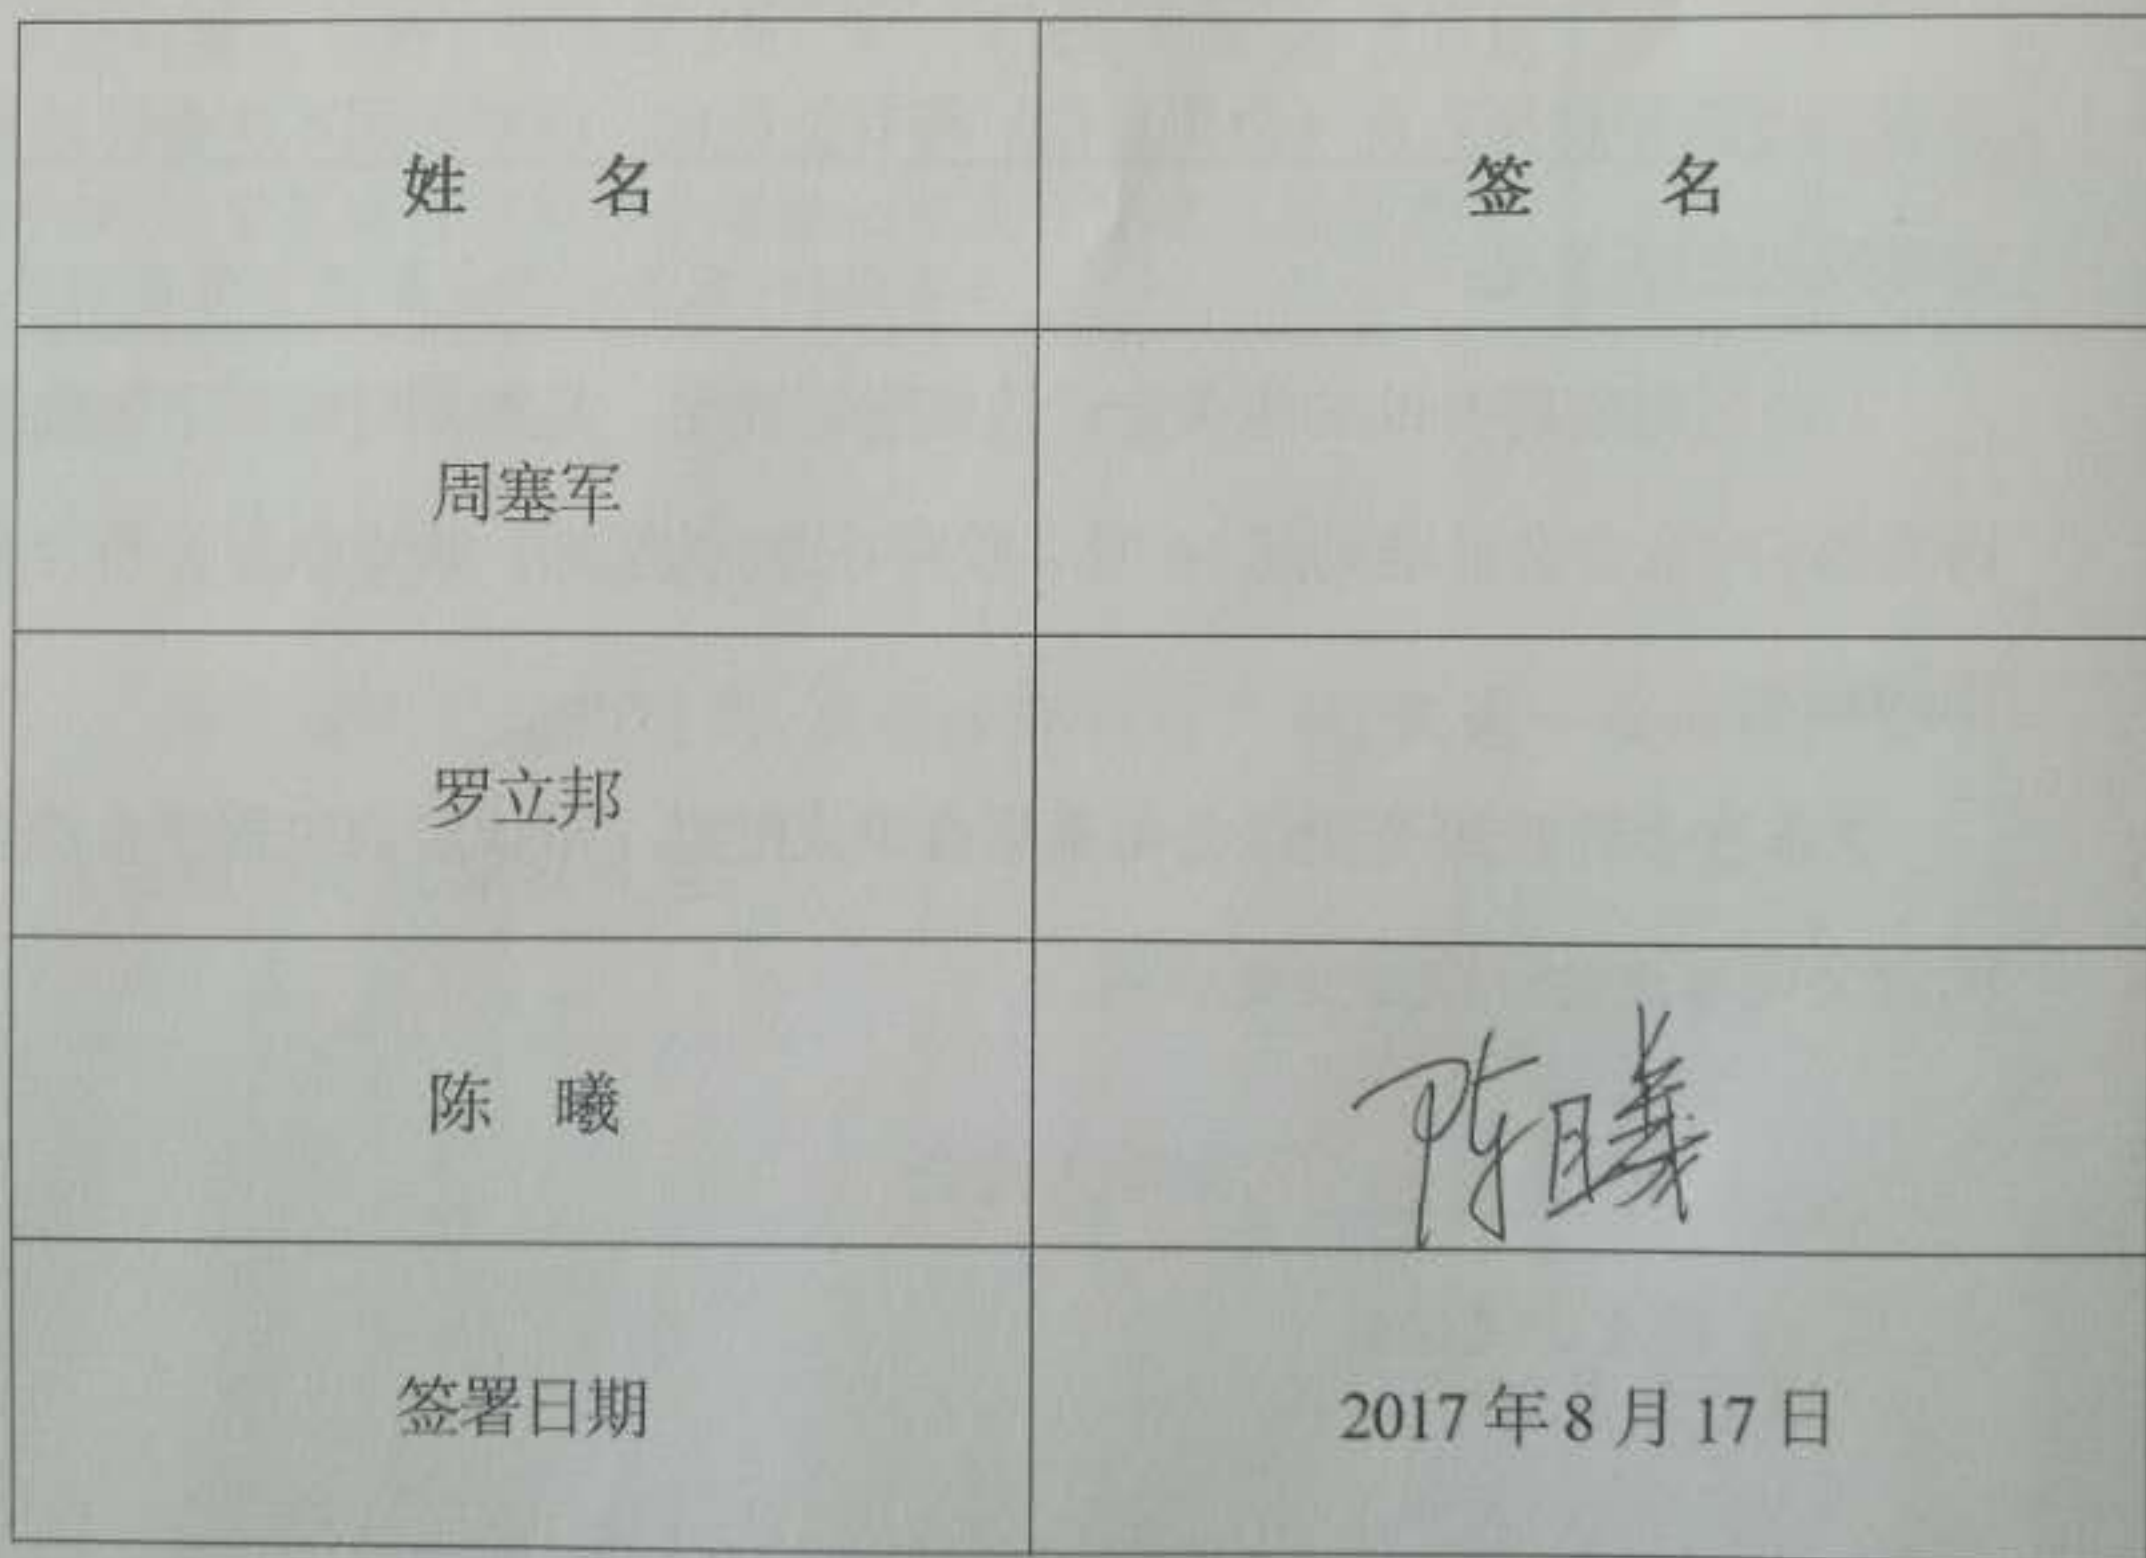 姓 名 签 名
周塞军
罗立邦
陈 曦 陈曦
签署日期 2017年8月17日